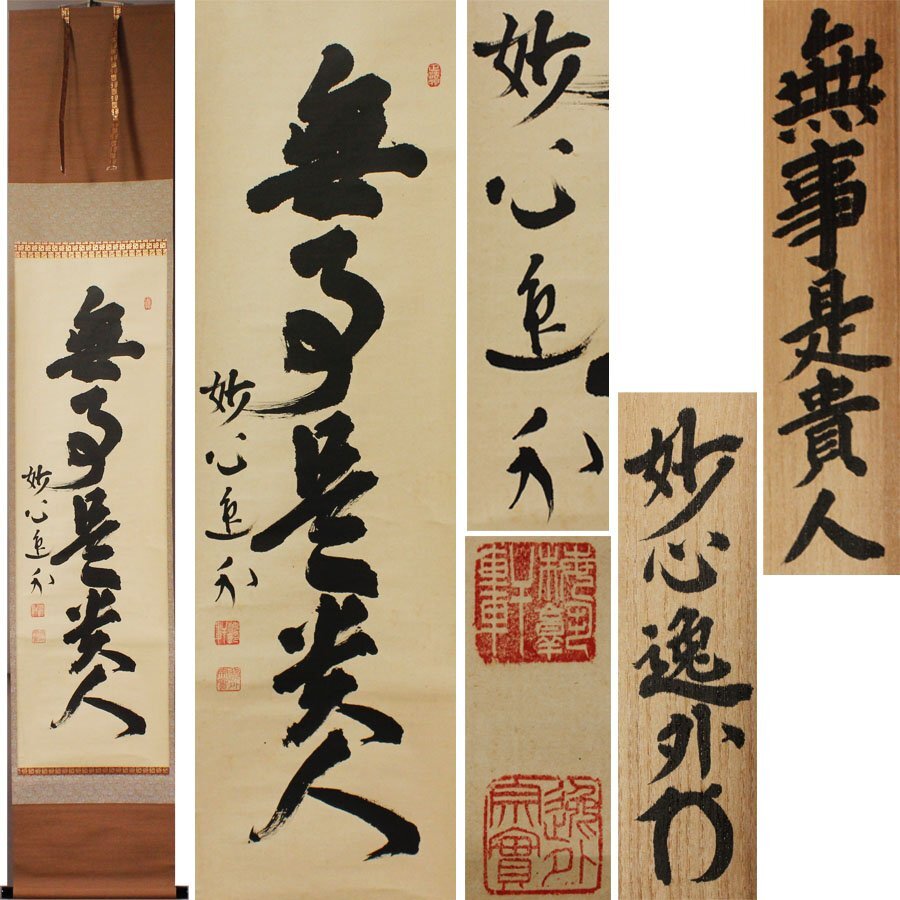 無事是貴人
妙心逸外
無事是貴人
妙心逸外
妙心逸外
逸外
宗實
妙心逸外
無事是貴人